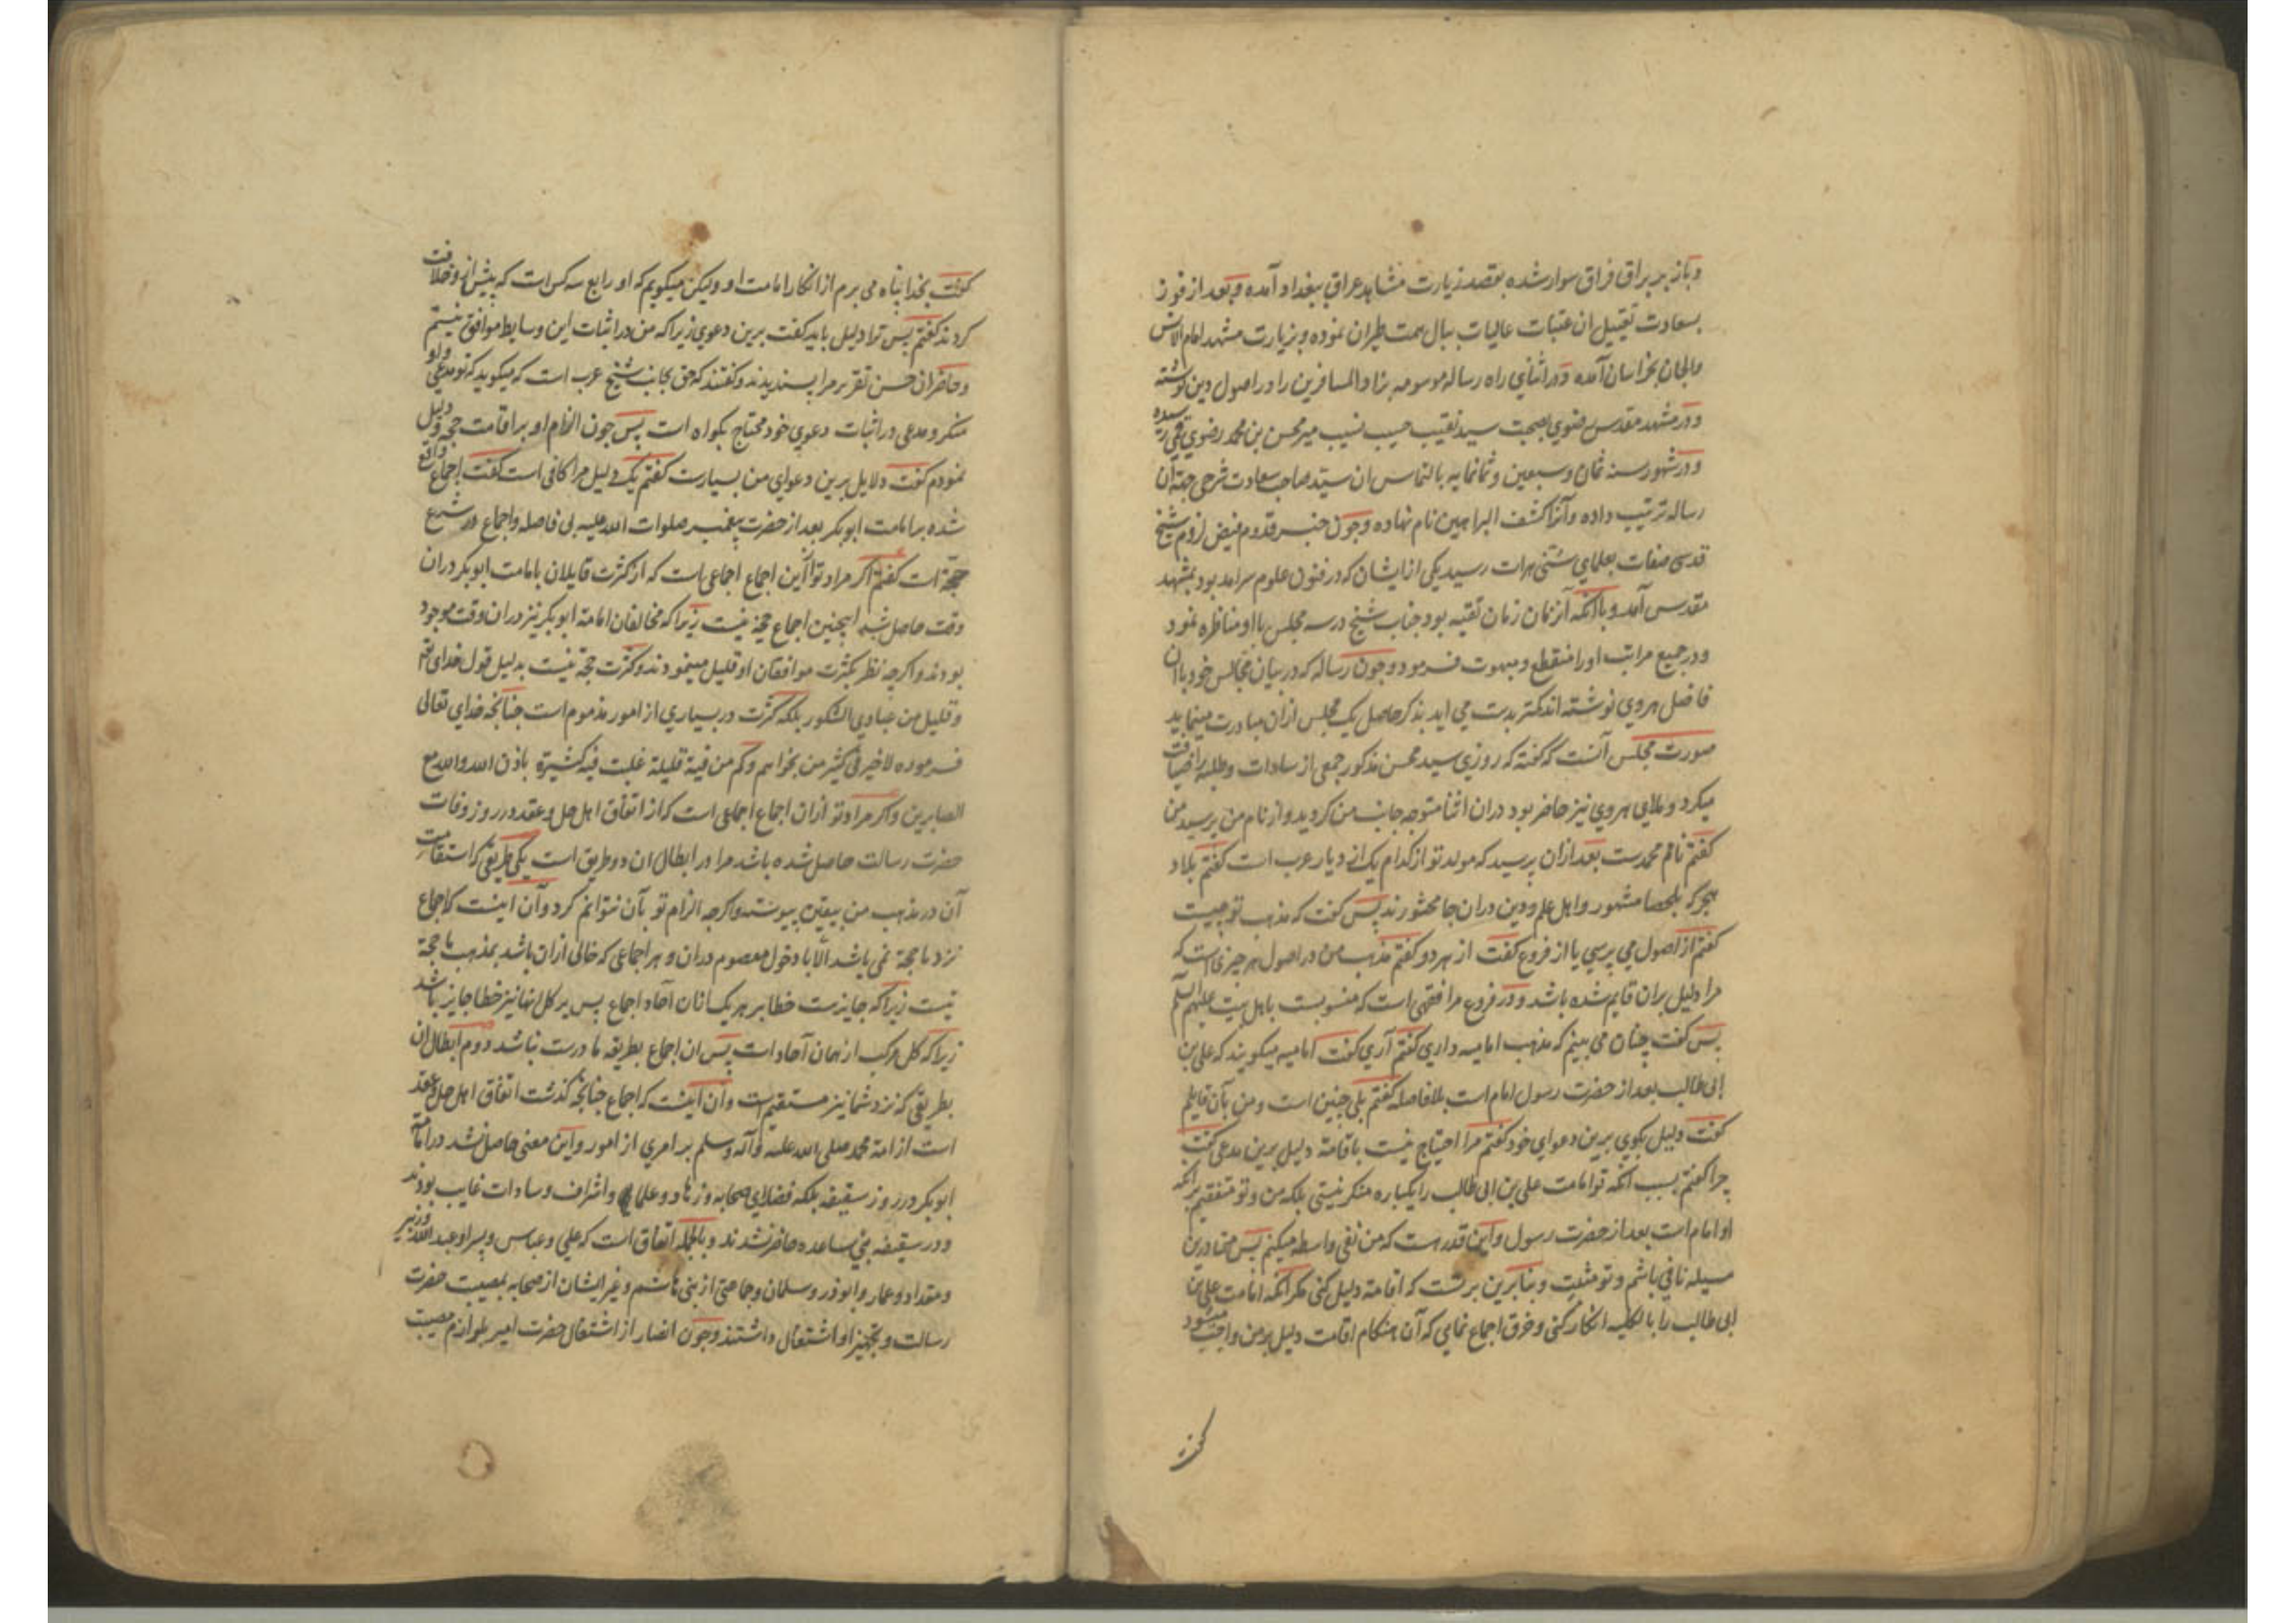 و باز بر براق فراق سوار شده بقصد زیارت مشاهد عراق ببغداد آمده و بعد از فوز
بسعادت تقبیل ان عتبات عالیات ببال همت طیران نموده و بزیارت مشهد امام الانس
والجان بخراسان آمده و در اثنای راه رساله موسومه بزاد المسافرین را در اصول دین نوشته
و در مشهد مقدس رضوی بصحبت سید نقیب حسیب نسیب میر محسن بن محمد رضوی قمی رسیده
و در شهور سنه ثمان و سبعین و ثمانمایه بالتماس ان سید صاحب سعادت شرحی جهة ان
رساله ترتیب داده و آنرا کشف البراهین نام نهاده و چون خبر قدوم فیض لزوم شیخ
قدسی صفات بعلمای سنّی هرات رسید یکی از ایشان که در فنون علوم سرامد بود بمشهد
مقدس آمد و با آنکه آنزمان زمان تقیه بود جناب شیخ در سه مجلس با او مناظره نمود
و در جمیع مراتب او را منقطع و مبهوت فرمود و چون رساله که در بیان مجالس خود با ان
فاضل هروی نوشته اند کمتر بدست می اید بذکر حاصل یک مجلس ازان مبادرت مینماید
صورت مجلس آنست که گفته که روزی سید محسن مذکور جمعی از سادات و طلبه را ضیافت
میکرد و ملای هروی نیز حاضر بود دران اثنا متوجه جانب من کردید و از نام من پرسید من
گفتم نامم محمدست بعد ازان پرسید که مولد تو از کدام یک از دیار عرب است گفتم بلاد
هجر که بلحصا مشهور و اهل علم و دین دران جا محشورند پس گفت که مذهب تو چیست
گفتم از اصول می پرسی یا از فروع گفت از هر دو گفتم مذهب من در اصول هر چیزی است که
مرا دلیل بران قایم شده باشد و در فروع مرا فقهی است که منسوبست باهل بیت علیهم السلم
پس گفت چنان می بینم که مذهب امامیه داری گفتم آری گفت امامیه میگویند که علی بن
ابی طالب بعد از حضرت رسول امام است بلا فاصله گفتم بلی چنین است و من بآن قایلم
گفت دلیل بگوی برین دعوای خود گفتم مرا احتیاج نیست باقامة دلیل برین مدعی گفت
چرا گفتم بسبب انکه تو امامت علی بن ابی طالب را یکباره منکر نیستی بلکه من و تو متفقیم بر انکه
او امام است بعد از حضرت رسول و این قدر هست که من نفی واسطه میکنم پس من درین
مسیله نافی باشم و تو مثبت و بنابرین بر تست که اقامة دلیل کنی مکر انکه امامت علی بن
ابی طالب را بالکلیه انکار کنی و خرق اجماع نمایی که آن هنگام اقامت دلیل بر من واجب میشود
گفت
گفت بخدا پناه می برم از انکار امامت او ولیکن میگویم که او رابع سه کس است که پیش از و خلافت
کردند گفتم پس ترا دلیل باید گفت برین دعوی زیرا که من در اثبات این وسایط موافق نیستم
و حاضران حسن تقریر مرا پسندیدند و گفتند که حق بجانب شیخ عرب است که میگوید که تو مدعی و او
منکر و مدعی در اثبات دعوی خود محتاج بکواه است پس چون الزام او بر اقامت حجه و دلیل
نمودم گفت دلایل برین دعوای من بسیارست گفتم یک دلیل مرا کافی است گفت اجماع واقع
شده بر امامت ابو بکر بعد از حضرت پیغمبر صلوات الله علیه بی فاصله و اجماع در شرع
حجّة است گفتم اکر مراد تو از این اجماع اجماعی است که از کثرت قایلان بامامت ابو بکر دران
وقت حاصل شده اینچنین اجماع حجة نیست زیرا که مخالفان امامة ابو بکر نیز در ان وقت موجود
بودند و اکرچه نظر بکثرت موافقان او قلیل مینمودند و کثرت حجة نیست بدلیل قول خدای تعم
و قلیل من عبادی الشکور بلکه کثرت در بسیاری از امور مذموم است چنانکه خدای تعالی
فرموده لا خیر فی کثیر من نجواهم و کم من فیة قلیلة غلبت فیه کثیرة باذن الله و الله مع
الصابرین و اکر مراد تو ازان اجماع اجماعی است که از اتفاق اهل حل و عقد در روز وفات
حضرت رسالت حاصل شده باشد مرا در ابطال ان دو طریق است یکی طریقی که استقامت
آن در مذهب من بیقین پیوسته و اکرچه الزام تو بآن نتوانم کرد و آن اینست که اجماع
نزد ما حجة نمی باشد الّا با دخول معصوم دران و هر اجماعی که خالی ازان باشد بمذهب ما حجة
نیست زیرا که جایزست خطا بر هر یک ازان آحاد اجماع پس بر کل انها نیز خطا جایز باشد
زیرا که کل مرکب از همان آحاد است پس ان اجماع بطریقه ما درست نباشد دوم ابطال ان
بطریقی که نزد شما نیز مستقیم است و آن اینست که اجماع چنانچه گذشت اتفاق اهل حل و عقد
است از امة محمد صلی الله علیه و آله و سلم بر امری از امور و این معنی حاصل نشد در امامة
ابو بکر در روز سقیفه بلکه فضلای صحابه و زهاد و علما و اشراف و سادات غایب بودند
و در سقیفه بنی ساعده حاضر نشدند و بالجمله اتفاق است که علی و عباس و پسر او عبد الله و زبیر
و مقداد و عمار و ابوذر و سلمان و جماعتی از بنی هاشم و غیر ایشان از صحابه بمصیبت حضرت
رسالت و تجهیز او اشتغال داشتند و چون انصار از اشتغال حضرت امیر بلوازم مصیبت